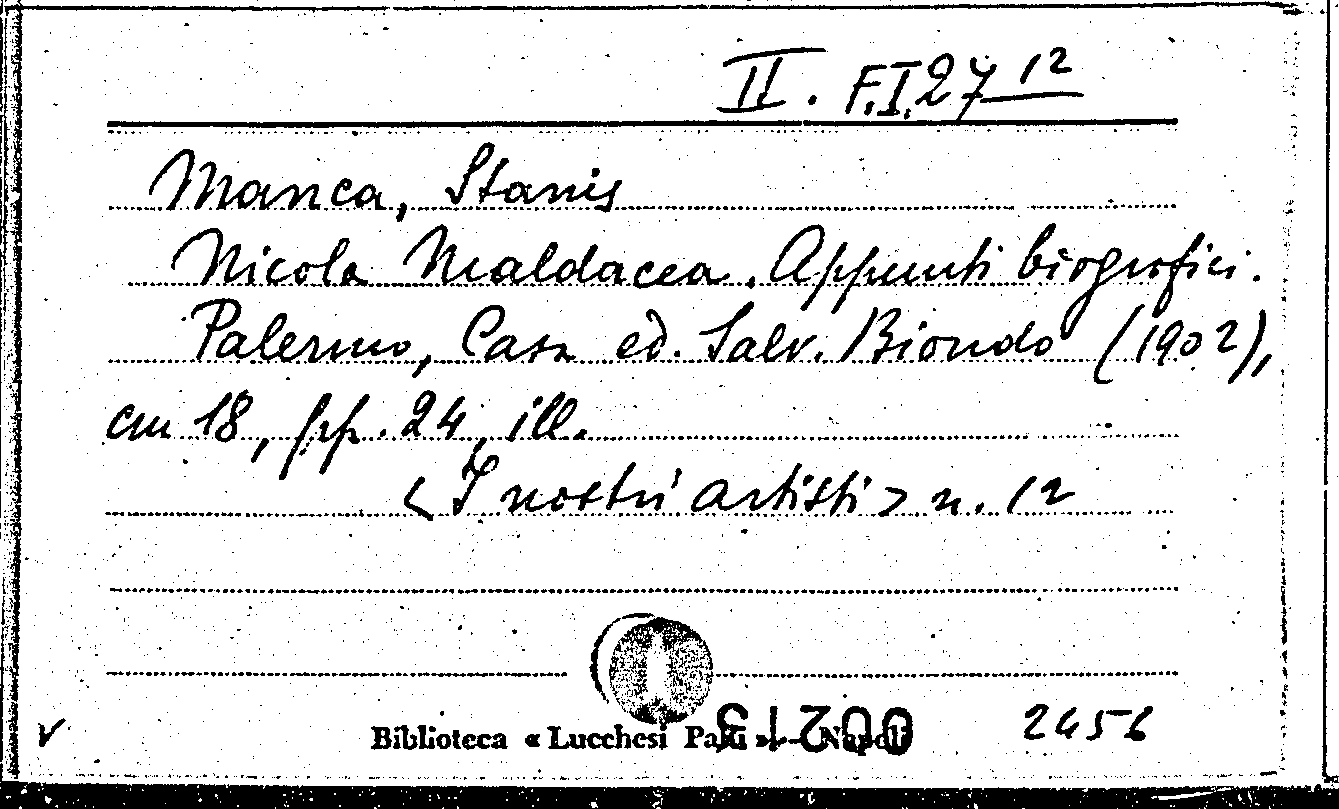 II. F.I.27 12
Manca, Stanis
Nicola Maldacea. Appunti biografici.
Palermo, Casa ed. Salv. Biondo (1902),
cm 18, pp. 24, ill.
< I nostri artisti > n. 12
v
Biblioteca « Lucchesi Palli » - Napoli
2456